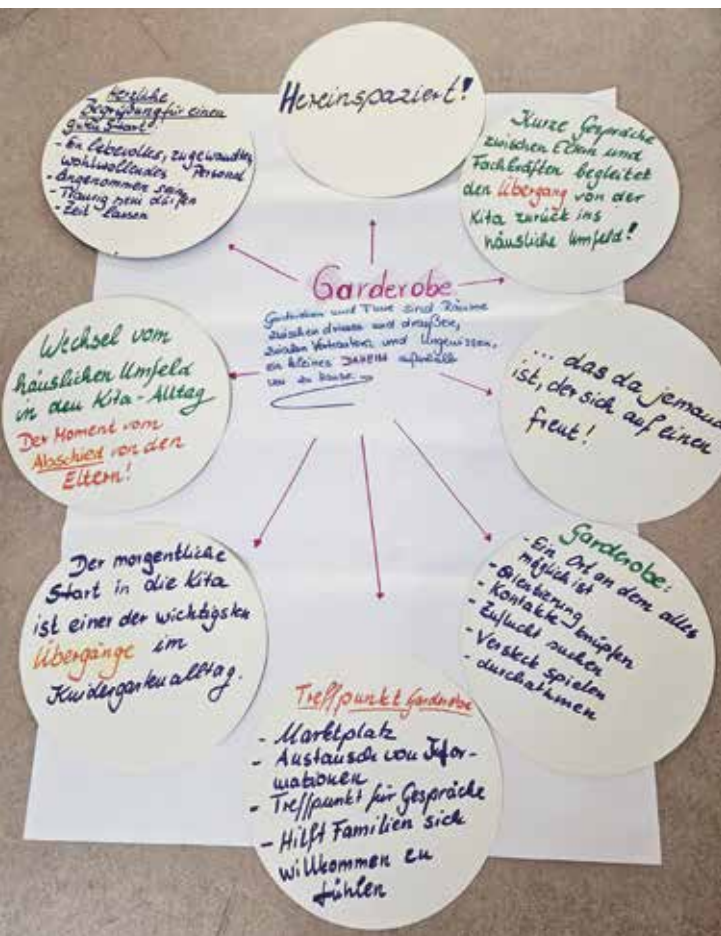 Hereinspaziert!
Herzliche
Begrüßung für einen
guten Start
- Ein liebevolles, zugewandtes,
wohlwollendes Personal
- Angenommen sein
- Traurig sein dürfen
- Zeit lassen
Kurze Gespräche
zwischen Eltern und
Fachkräften begleitet
den Übergang von der
Kita zurück ins
häusliche Umfeld!
Garderobe
Garderoben und Flure sind Räume
zwischen drinnen und draußen,
zwischen Vertrautem und Ungewissen,
ein kleines DAHEIM außerhalb
von zu Hause.
Wechsel vom
häuslichen Umfeld
in den Kita-Alltag
Der Moment vom
Abschied von den
Eltern!
... das da jemand
ist, der sich auf einen
freut!
Der morgentliche
Start in die Kita
ist einer der wichtigsten
Übergänge im
Kindergartenalltag.
Garderobe:
- Ein Ort an dem alles
möglich ist
- Orientierung
- Kontakte knüpfen
- Zuflucht suchen
- Versteck spielen
- durchatmen
Treffpunkt Garderobe
- Marktplatz
- Austausch von Infor-
mationen
- Treffpunkt für Gespräche
- Hilft Familien sich
willkommen zu
fühlen